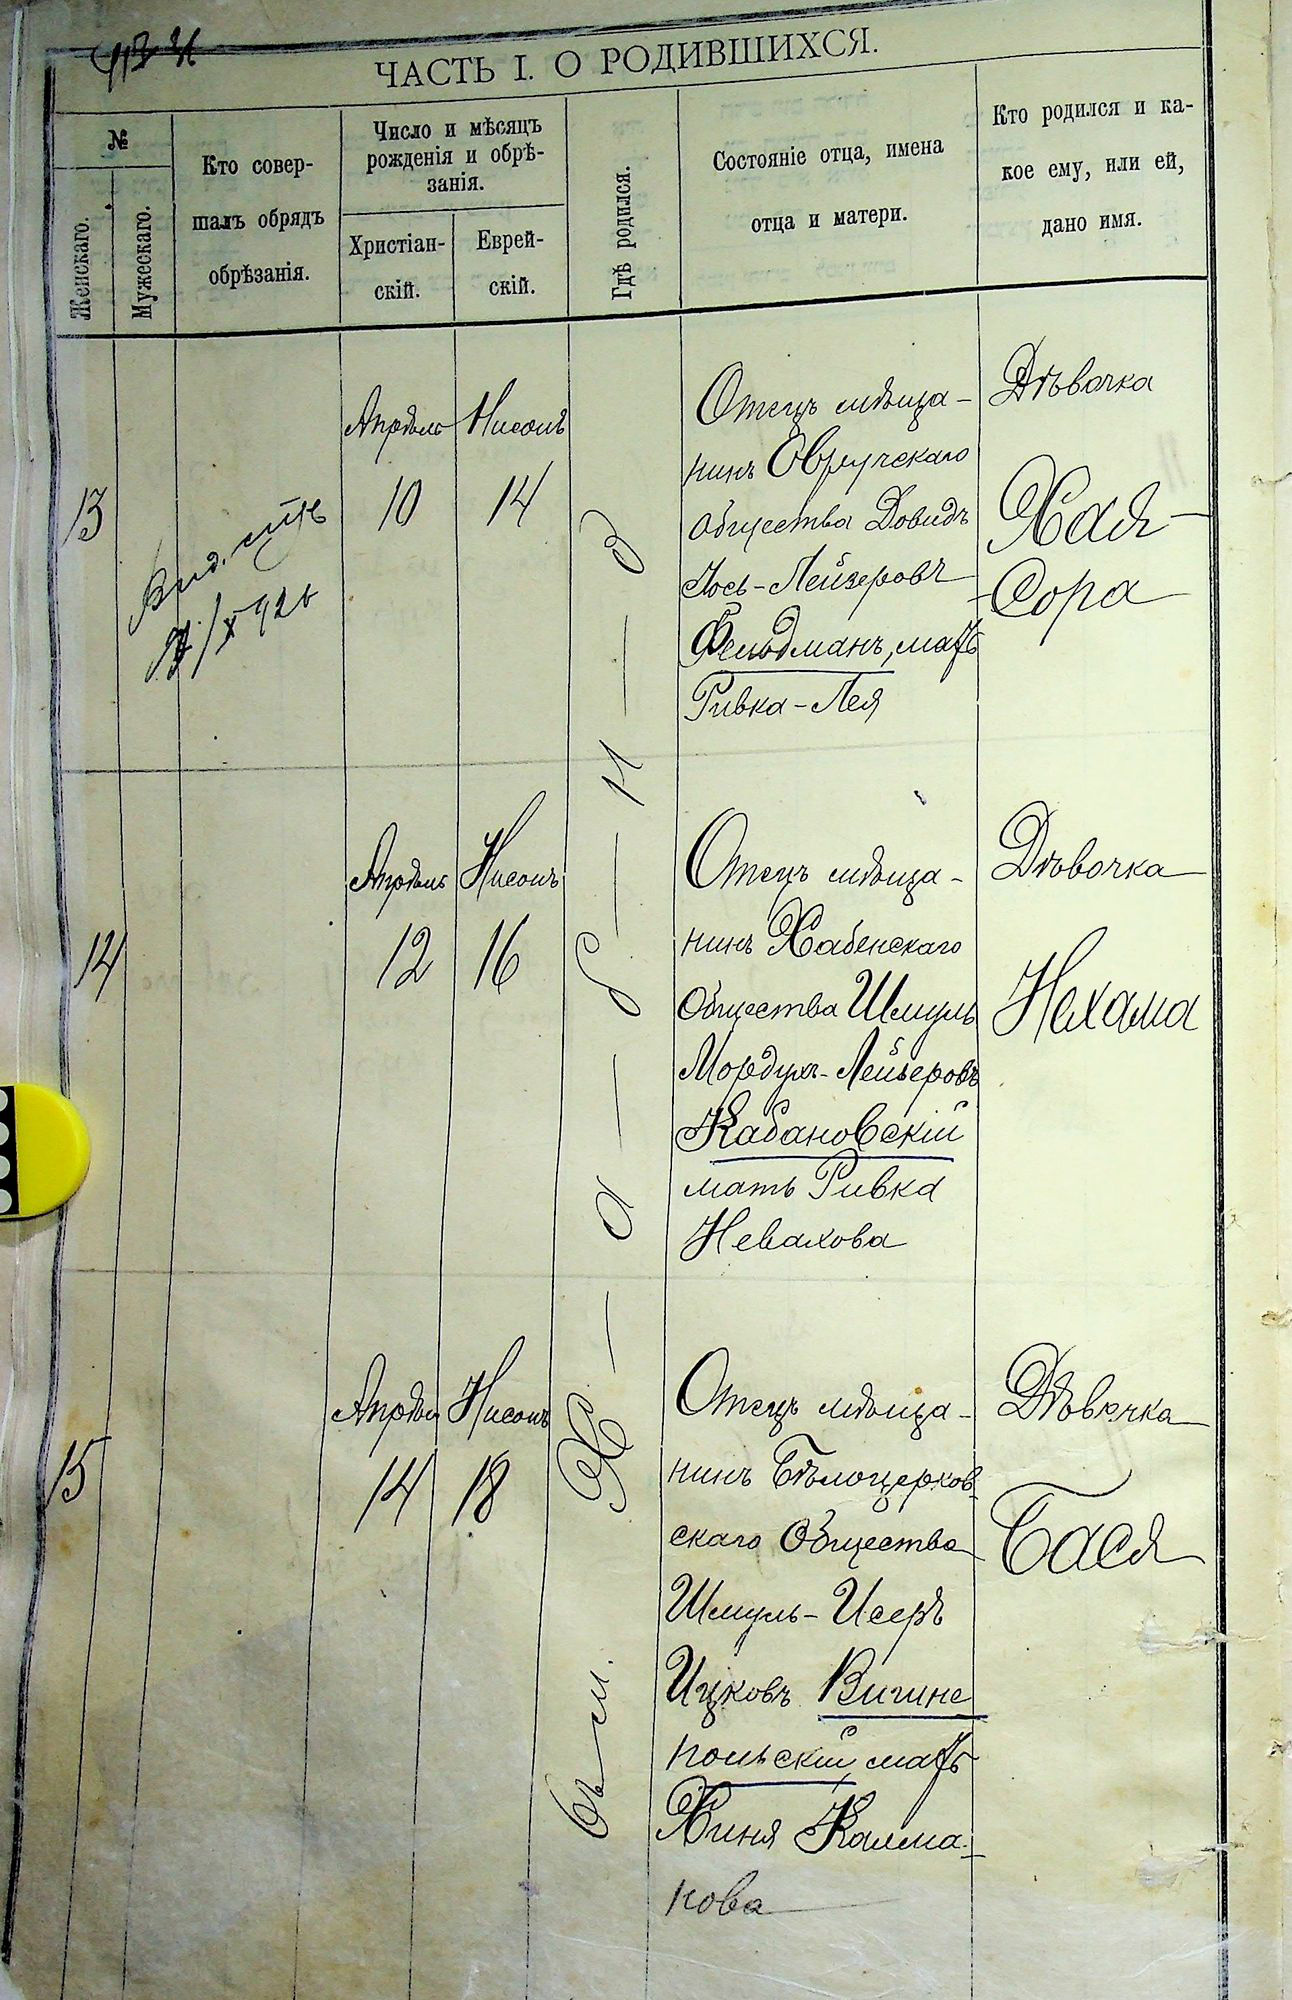 ЧАСТЬ I. О РОДИВШИХСЯ.
№
Женскаго.
Мужескаго.
Кто совер-
шалъ обрядъ
обрѣзанія.
Число и мѣсяцъ
рожденія и обрѣ-
занія.
Христіан-
скій.
Еврей-
скій.
Гдѣ родился.
Состояніе отца, имена
отца и матери.
Кто родился и ка-
кое ему, или ей,
дано имя.
13
Апрѣль
10
Нисонъ
14
Отецъ мѣща-
нинъ Овручскаго
общества Довидъ
Іось-Лейзеровъ
Фельдманъ, мать
Ривка-Лея
Дѣвочка
Хая-
Сора
14
Апрѣль
12
Нисонъ
16
Отецъ мѣща-
нинъ Хабенскаго
Общества Шмуль
Мордухъ-Лейзеровъ
Кабановскій
мать Ривка
Невахова
Дѣвочка
Нехама
15
Апрѣль
14
Нисонъ
18
Отецъ мѣща-
нинъ Бѣлоцерков-
скаго Общества
Шмуль-Исеръ
Ицковъ Вигине
польскій, мать
Хиня Калма-
нова
Дѣвочка
Бася
Въ м. Х-а-б-н-э